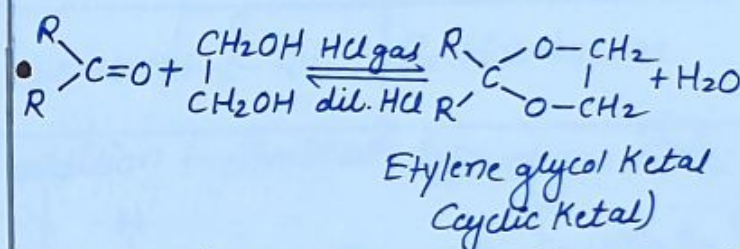 R
R C=O + CH2OH CH2OH HCl gas dil. HCl R R' C O-CH2 O-CH2 + H2O
Etylene glycol Ketal
Ccyclic Ketal)